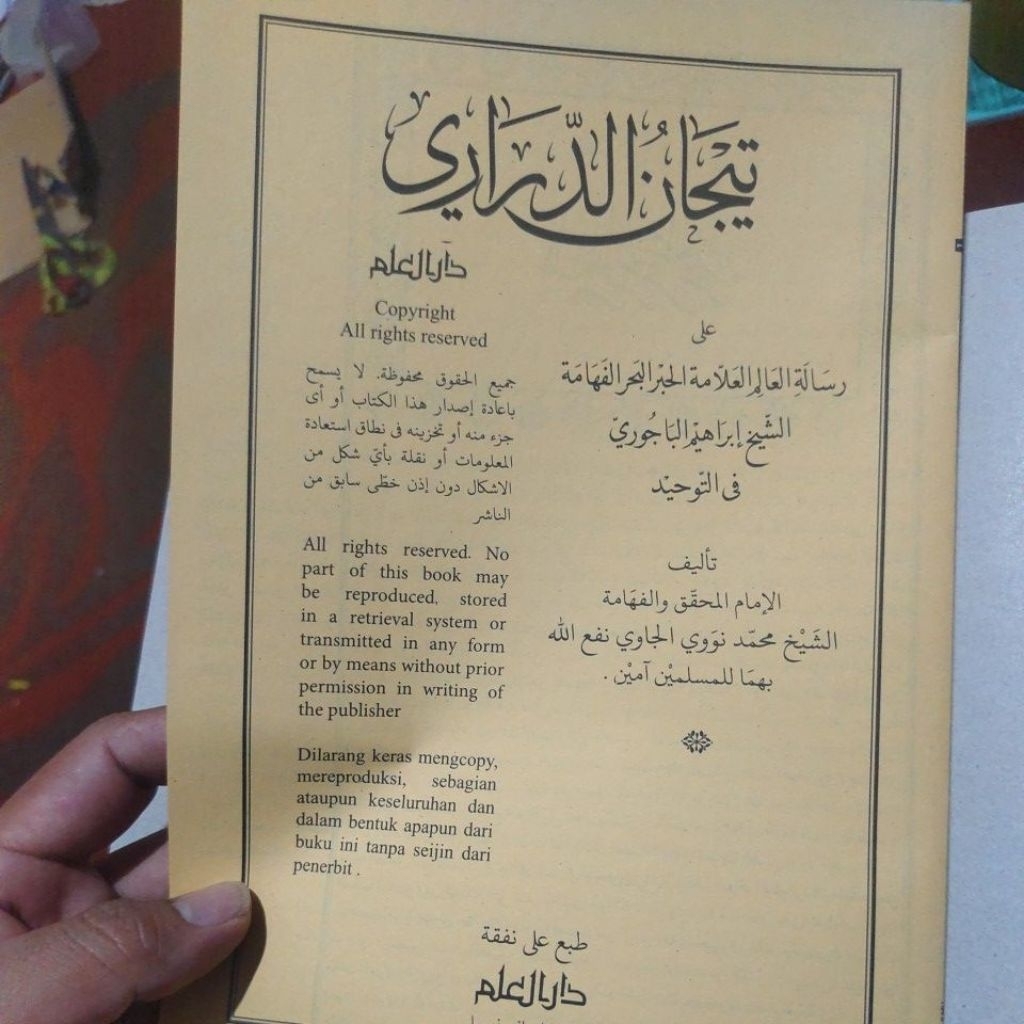 تِيْجَانُ الدَّرَارِي
عَلى
رِسَالَةِ العَالِمِ العَلَّامة الحَبْرِ البَحْرِ الفَهَامَة
الشَّيخ إِبرَاهِيْم البَاجُوريّ
فى التَّوحيْد
تأليف
الإمام المحقَّق والفهَامة
الشَيْخ محمّد نوَوي الجاوي نفع الله
بهمَا للمسلميْن آميْن .
دار العلم
Copyright
All rights reserved
جميع الحقوق محفوظة. لا يسمح
باعادة إصدار هذا الكتاب أو أى
جزء منه أو تخزينه فى نطاق استعادة
المعلومات أو نقلة بأيّ شكل من
الاشكال دون إذن خطّى سابق من
الناشر
All rights reserved. No
part of this book may
be reproduced, stored
in a retrieval system or
transmitted in any form
or by means without prior
permission in writing of
the publisher
Dilarang keras mengcopy,
mereproduksi, sebagian
ataupun keseluruhan dan
dalam bentuk apapun dari
buku ini tanpa seijin dari
penerbit .
طبع على نفقة
دار العلم